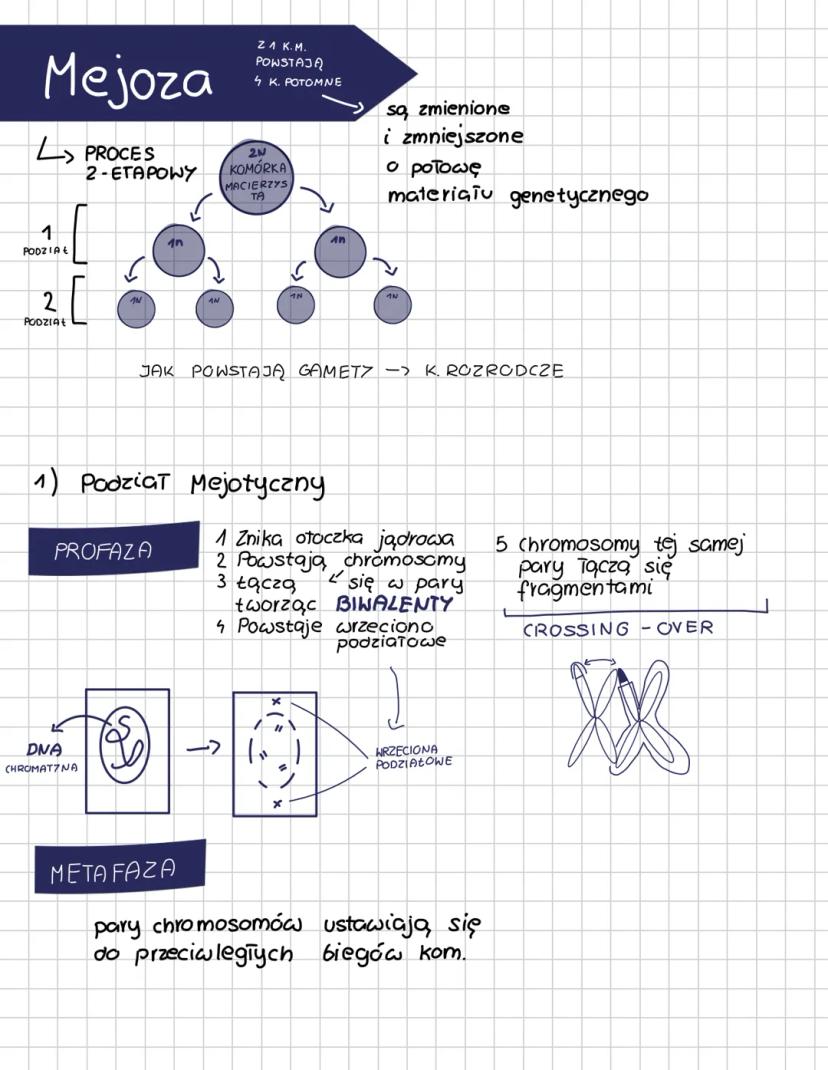 Mejoza
Z 1 K.M.
POWSTAJĄ
4 K. POTOMNE
są zmienione
i zmniejszone
o połowę
materiału genetycznego
PROCES
2-ETAPOWY
2N
KOMÓRKA
MACIERZYS
TA
1
PODZIAŁ
1n
1n
2
PODZIAŁ
1N
1N
1N
1N
JAK POWSTAJĄ GAMETY -> K. ROZRODCZE
1) Podział Mejotyczny
PROFAZA
1 Znika otoczka jądrowa
2 Powstają chromosomy
3 Łączą się w pary
tworząc BIWALENTY
4 Powstaje wrzeciono
podziałowe
5 chromosomy tej samej
pary łączą się
fragmentami
CROSSING - OVER
DNA
CHROMATYNA
WRZECIONA
PODZIAŁOWE
METAFAZA
pary chromosomów ustawiają się
do przeciwległych biegów kom.